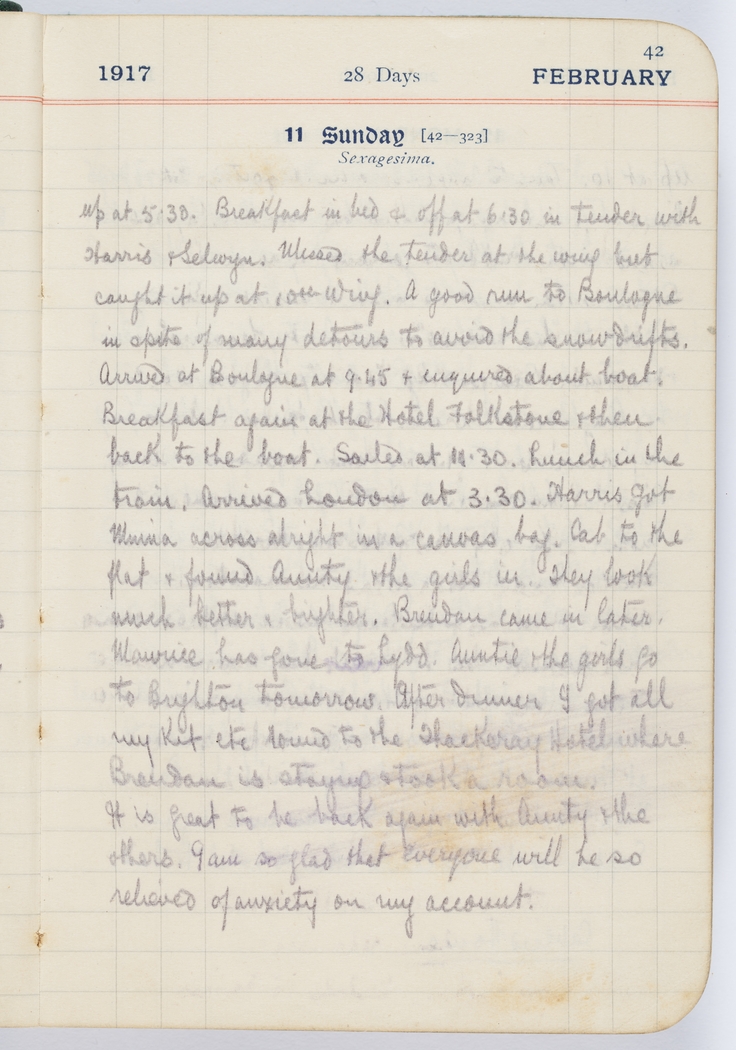 42
1917 28 Days FEBRUARY
11 Sunday [42—323]
Sexagesima.
Up at 5.30. Breakfast in bed & off at 6.30 in tender with
Harris & Selwyn. Missed the tender at the wing but
caught it up at 10th Wing. A good run to Boulogne
in spite of many detours to avoid the snowdrifts.
Arrived at Boulogne at 9.45 & enquired about boat.
Breakfast again at the Hotel Folkstone & then
back to the boat. Sailed at 11.30. Lunch in the
train. Arrived London at 3.30. Harris got
across alright in a canvas bag. Cab to the
flat & found Aunty & the girls in. They look
much better & brighter. Brendan came in later.
Maurice has gone to Lydd. Auntie & the girls go
to Brighton tomorrow. After dinner I got all
my kit etc round to the Thackeray Hotel where
Brendan is staying & took a room.
It is great to be back again with Aunty & the
others. I am so glad that everyone will be so
relieved of anxiety on my account.